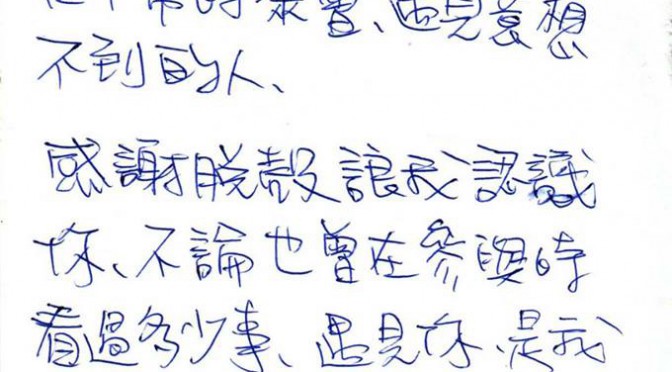 、遇見意想
不到的人、
感謝脫殼讓我認識
你、不論也曾在參與時
看過多少事、遇見你、是我